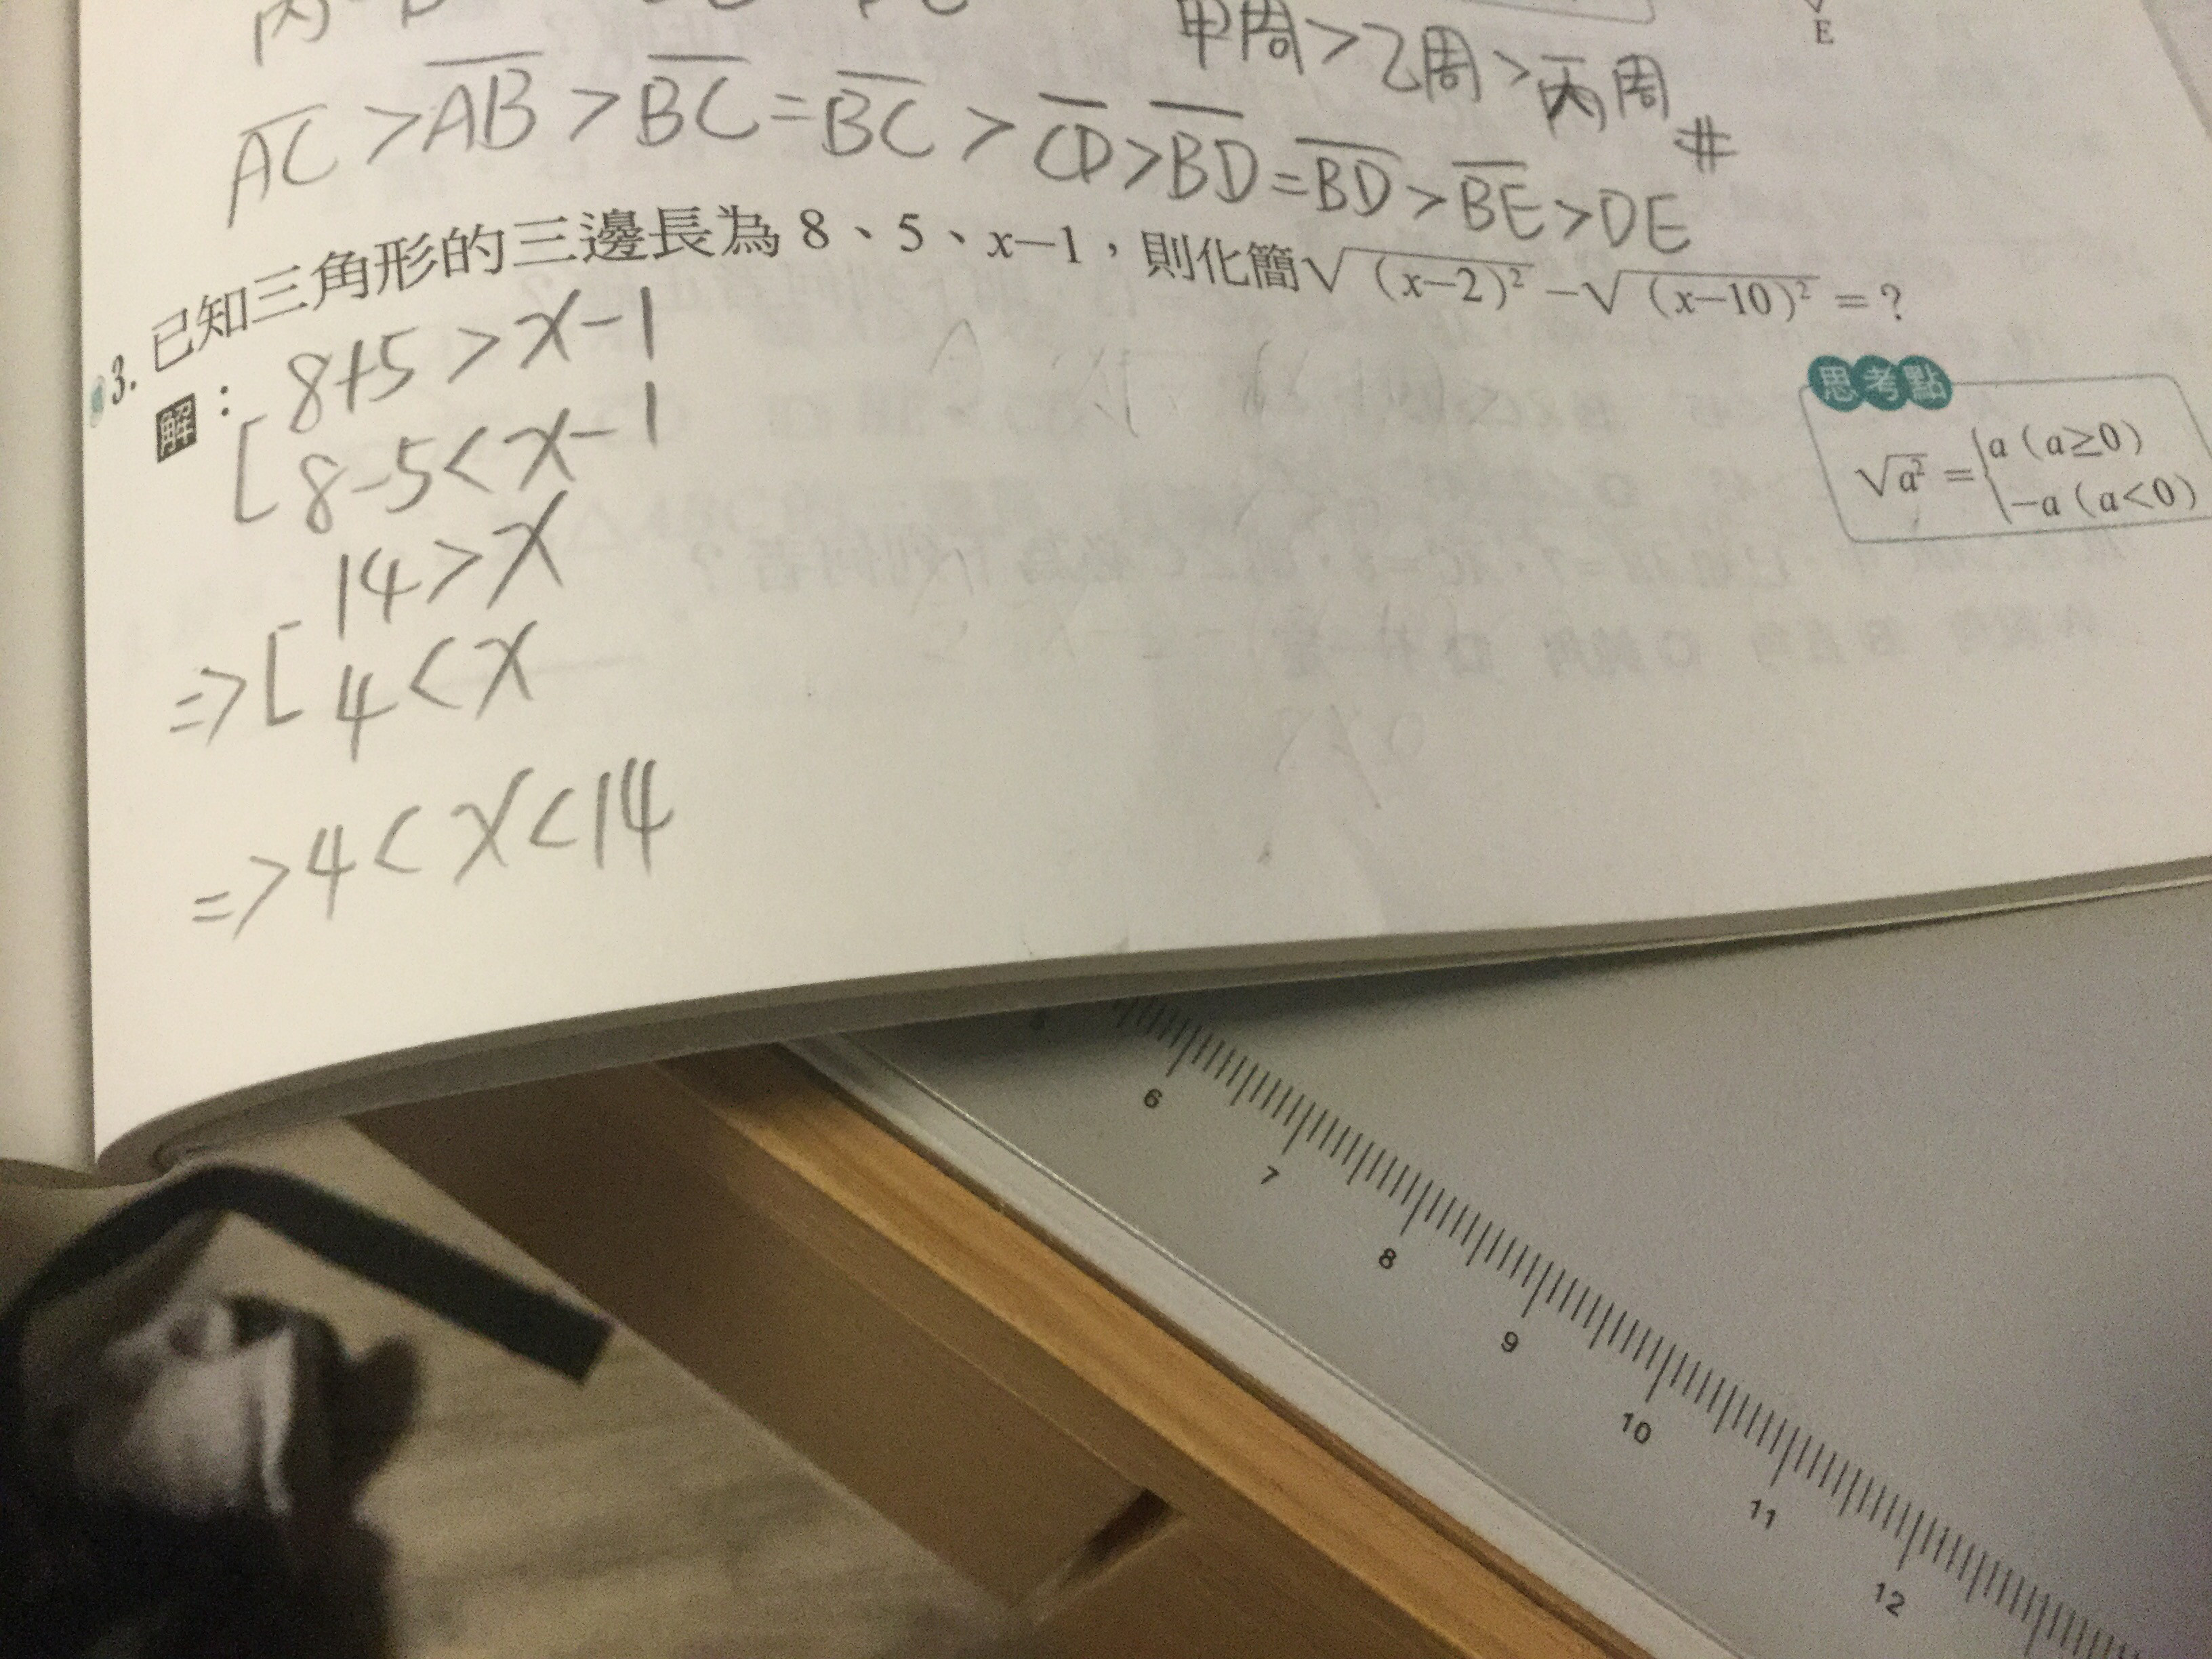 甲周>乙周>丙周 #
E
AC>AB>BC=BC>CD>BD=BD>BE>DE
3. 已知三角形的三邊長為 8、5、x−1,則化簡√(x−2)² −√(x−10)² =?
解:
8+5>x−1
8−5<x−1
14>x
=>[ 4<x
=>4<x<14
思考點
√a² = { a(a≥0)
−a(a<0)
6
7
8
9
10
11
12